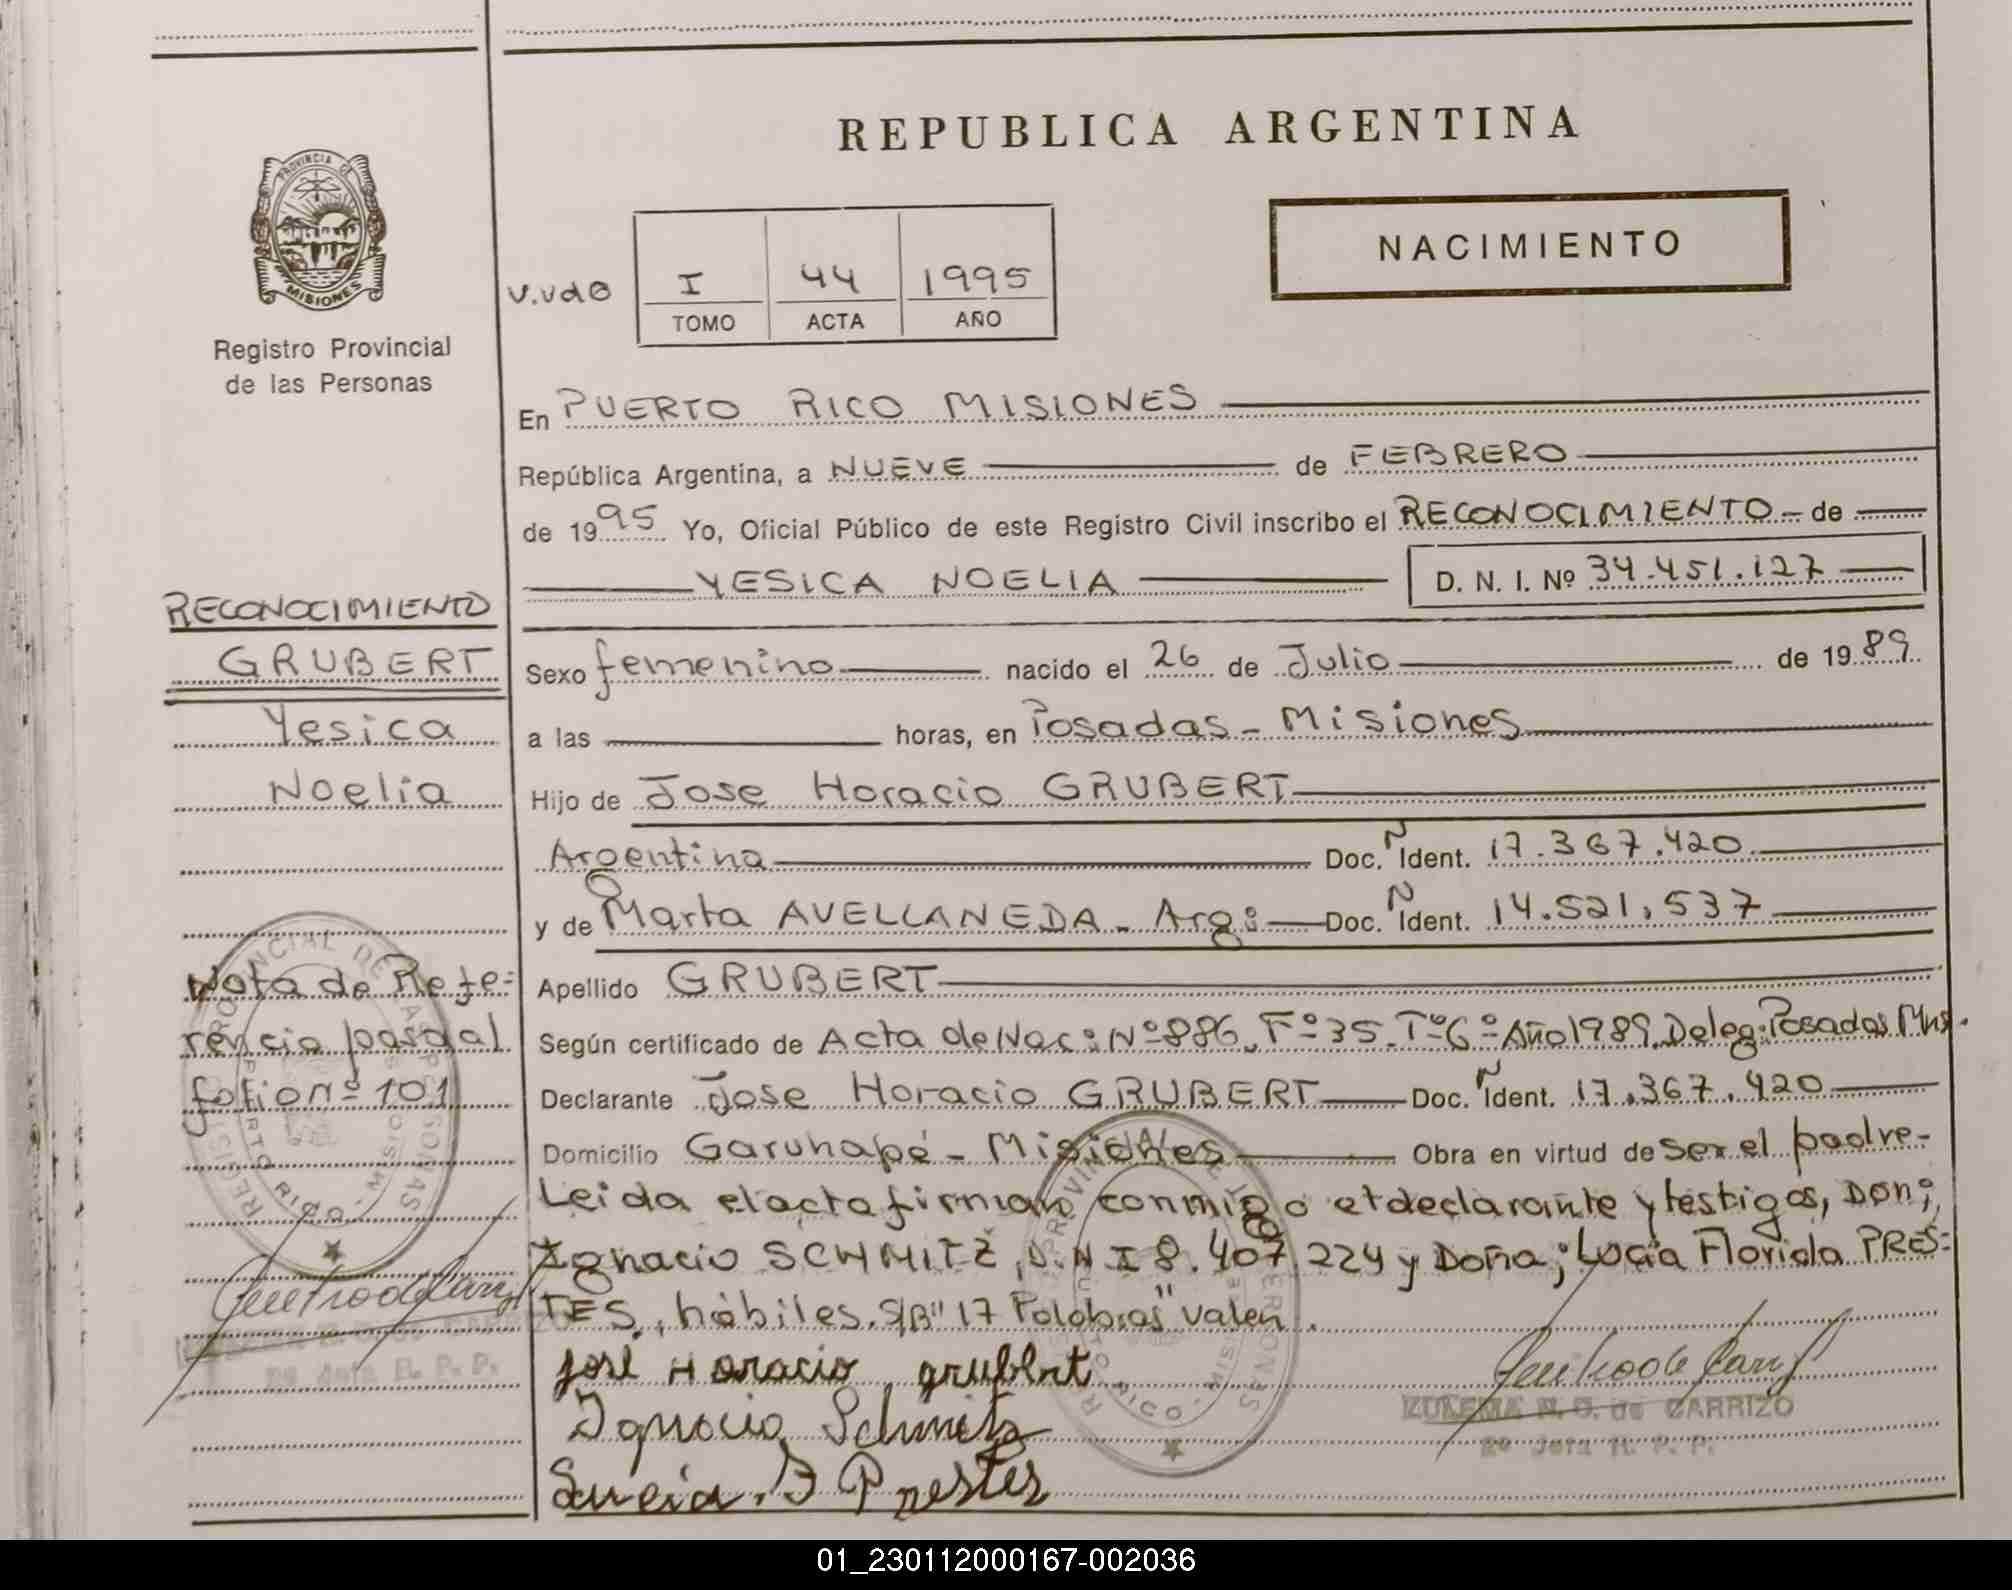 REPUBLICA ARGENTINA
PROVINCIA DE
MISIONES
Registro Provincial
de las Personas
V.Vdo
I 44 1995
TOMO ACTA AÑO
NACIMIENTO
En PUERTO RICO MISIONES
República Argentina, a NUEVE de FEBRERO
de 1995 Yo, Oficial Público de este Registro Civil inscribo el RECONOCIMIENTO - de
YESICA NOELIA D. N. I. Nº 34.451.127
RECONOCIMIENTO
GRUBERT
Yesica
Noelia
Sexo femenino nacido el 26 de Julio de 1989
a las horas, en Posadas - Misiones
Hijo de Jose Horacio GRUBERT
Argentina Doc. Ñ Ident. 17.367.420
y de Marta AVELLANEDA - Arg: Doc. Ñ Ident. 14.521.537
Apellido GRUBERT
Según certificado de Acta de Nac: Nº 886. Fº 35. Tº 6º Año 1989. Deleg: Posadas Mns.
Declarante Jose Horacio GRUBERT Doc. Ñ Ident. 17.367.420
Domicilio Garuhapé - Misiones Obra en virtud de ser el padre-
Leida el acta firman conmigo el declarante y testigos, Don;
Ignacio SCHMITZ, D.N I 8.407 224 y Doña; Lucia Florida PRES=
TES, hábiles. S/B" 17 Palabras" valen.
Nota de Refe=
rencia pasa al
folio nº 101
José Horacio grubert
Ignacio Schmitz
Lucia. F Prestes
ZULEMA N. G. de CARRIZO
2º Jefa R. P. P.
01_230112000167-002036